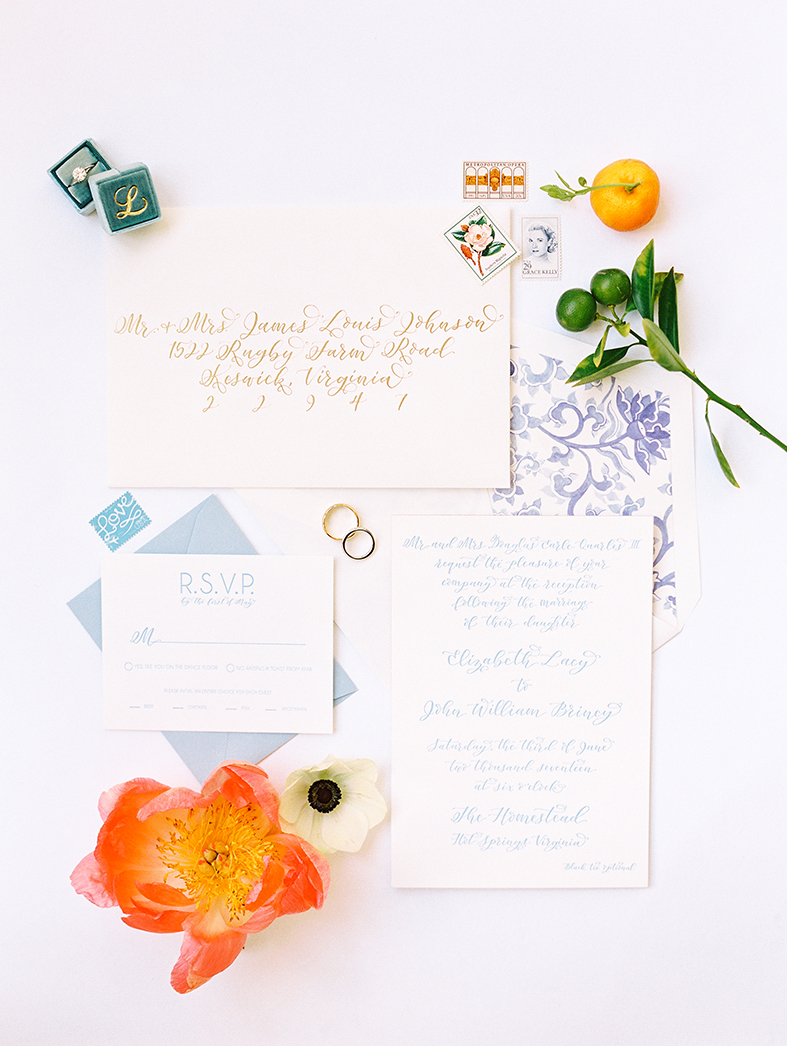 L
METROPOLITAN OPERA
GRACE KELLY
29
Mr. & Mrs James Louis Johnson
1522 Rugby Farm Road
Keswick, Virginia
2 2 9 4 7
Love
R.S.V.P.
by the first of May
M
Mr and Mrs Douglas Carle Quarles III
request the pleasure of your
company at the reception
following the marriage
of their daughter
Elizabeth Lacy
to
John William Briney
Saturday, the third of June
two thousand seventeen
at six o'clock
The Homestead
Hot Springs Virginia
Black tie optional